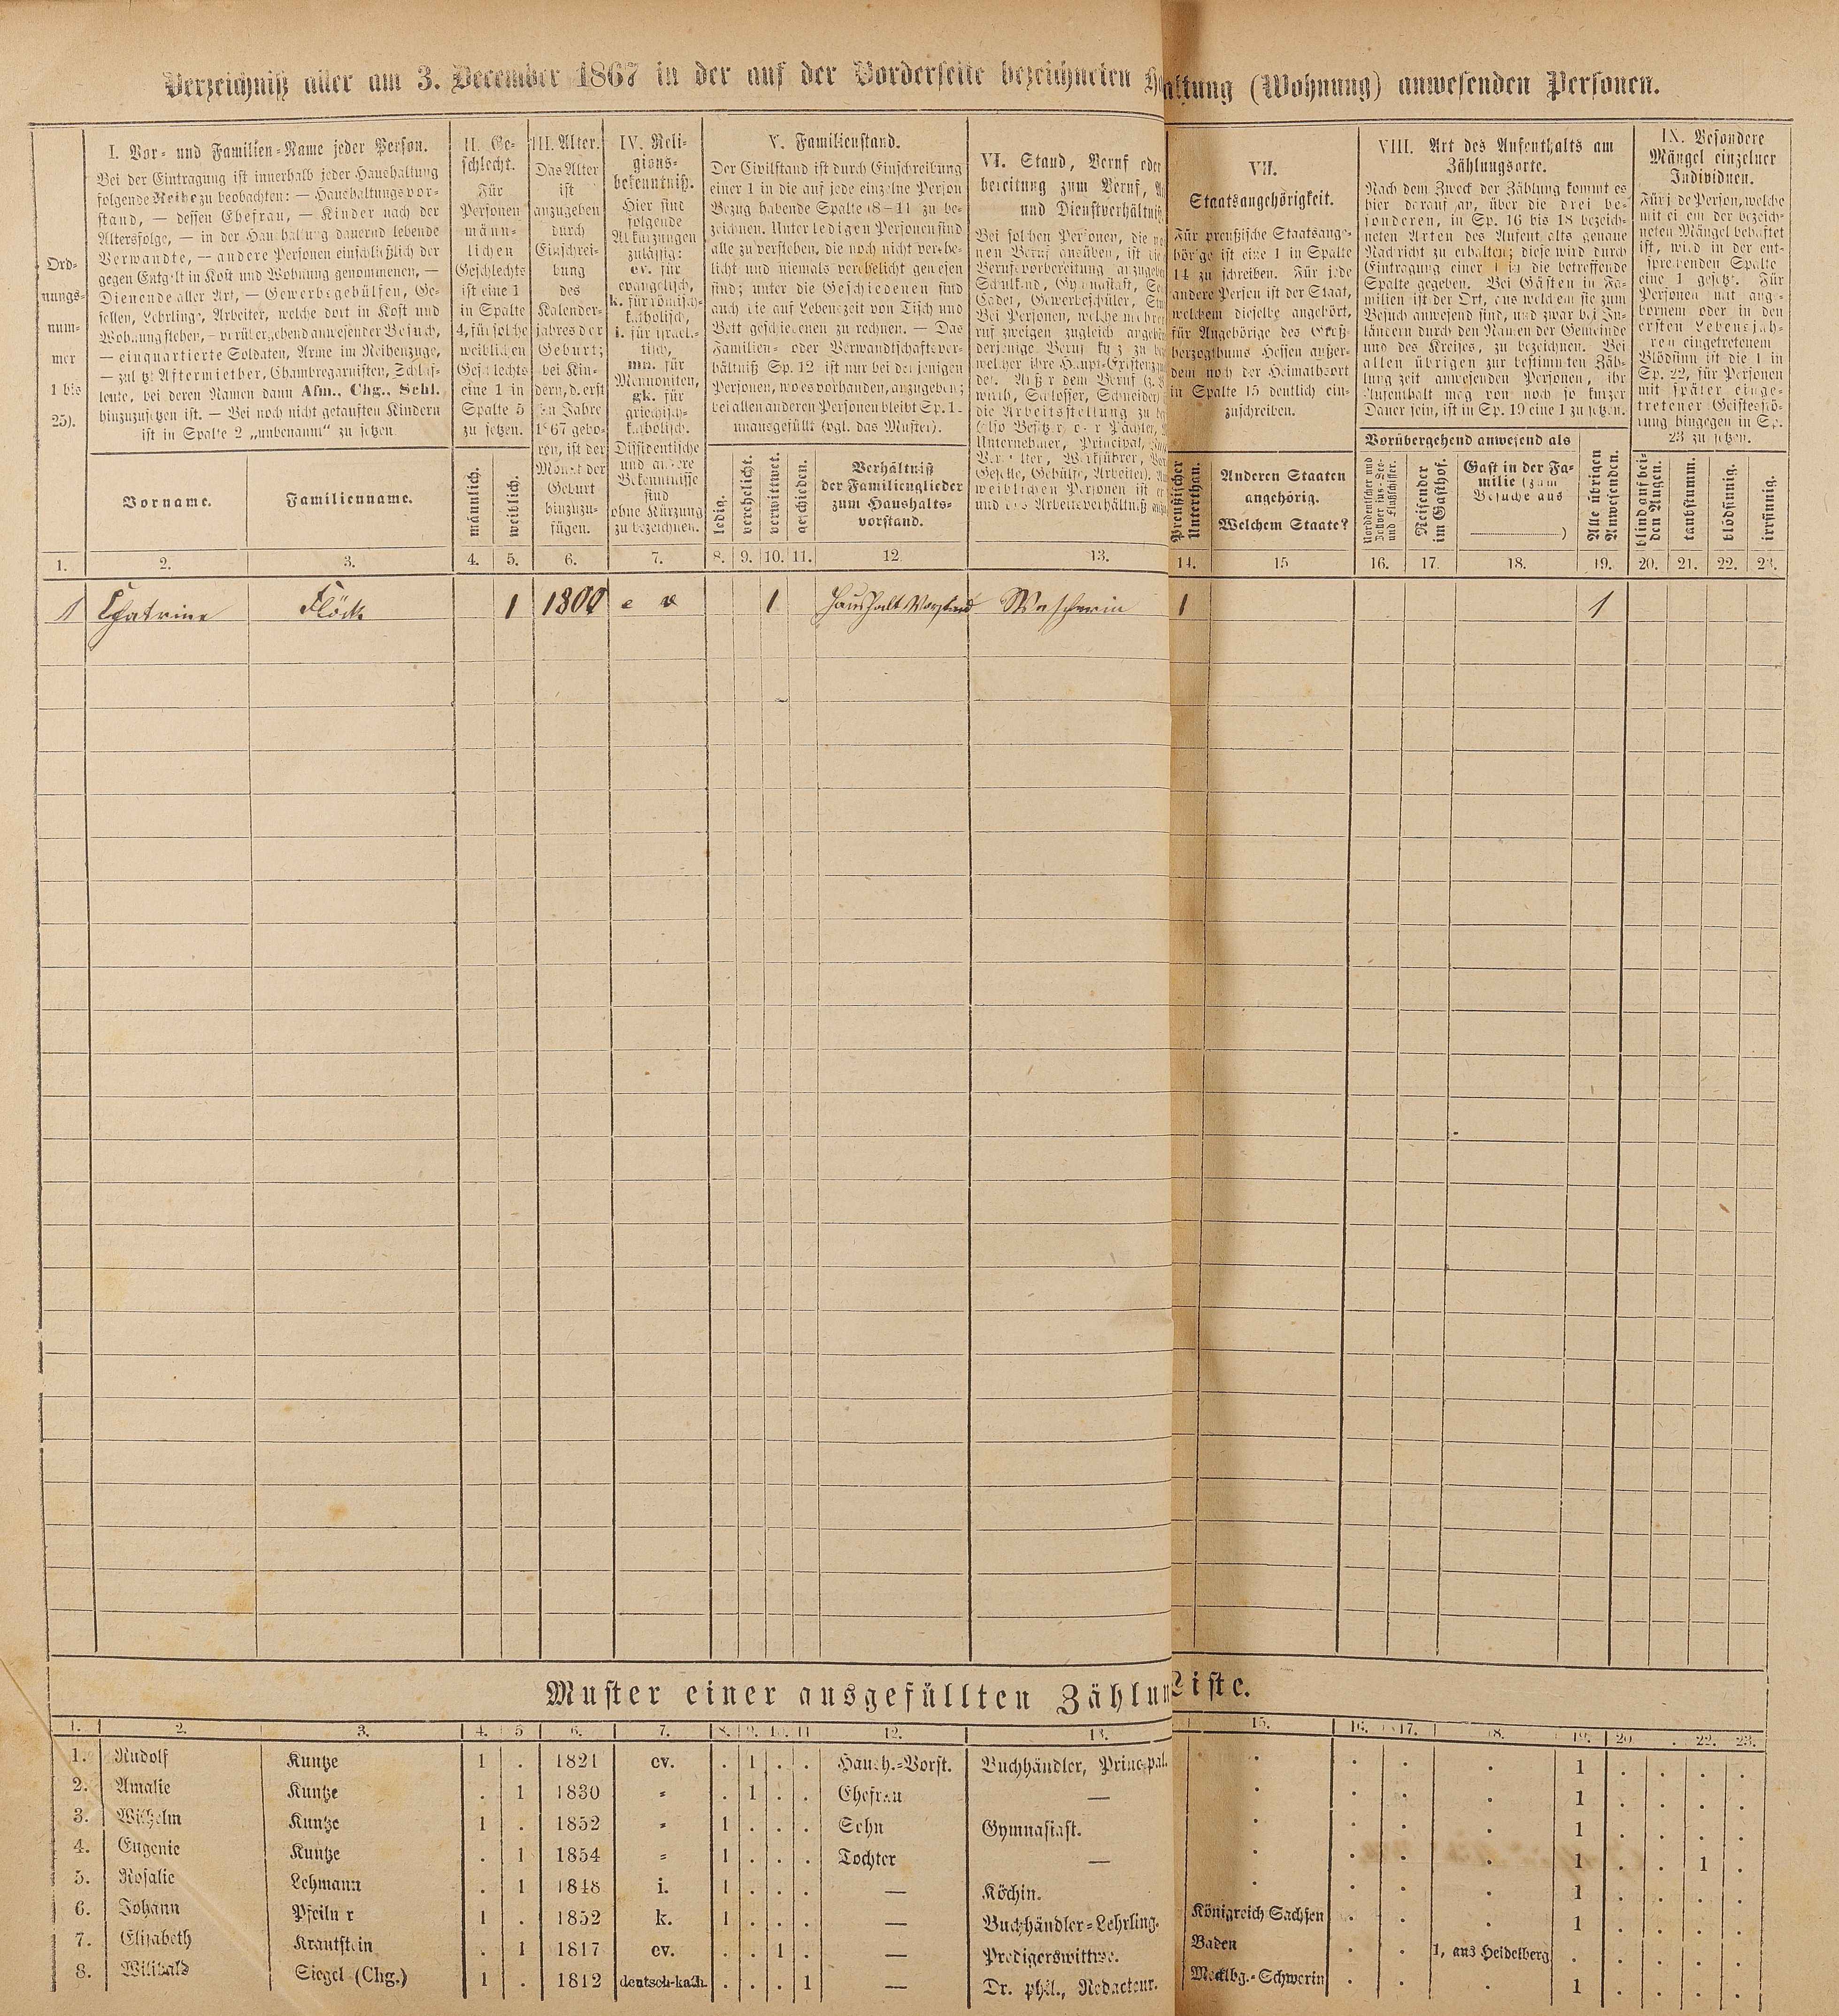 Verzeichniß aller am 3. December 1867 in der auf der Vorderseite bezeichneten Haltung (Wohnung) anwesenden Personen.
Ord-
nungs-
num-
mer
1 bis
25).
I. Vor- und Familien-Name jeder Person.
Bei der Eintragung ist innerhalb jeder Haushaltung
folgende Reihe zu beobachten: — Haushaltungsvor-
stand, — dessen Ehefrau, — Kinder nach der
Altersfolge, — in der Haushaltung dauernd lebende
Verwandte, — andere Personen einschließlich der
gegen Entgelt in Kost und Wohnung genommenen, —
Dienende aller Art, — Gewerbsgehülfen, Ge-
sellen, Lehrlinge, Arbeiter, welche dort in Kost und
Wohnung stehen, — vorübergehend anwesender Besuch,
— einquartierte Soldaten, Arme im Reihenzuge,
— zuletzt Aftermiether, Chambregarnisten, Schlaf-
leute, bei deren Namen dann Afm., Chg., Schl.
hinzuzusetzen ist. — Bei noch nicht getauften Kindern
ist in Spalte 2 „unbenannt“ zu setzen
Vorname.
Familienname.
II. Ge-
schlecht.
Für
Personen
männ-
lichen
Geschlechts
ist eine 1
in Spalte
4, für solche
weiblichen
Geschlechts
eine 1 in
Spalte 5
zu setzen.
männlich.
weiblich.
III. Alter.
Das Alter
ist
anzugeben
durch
Einschrei-
bung
des
Kalender-
jahres der
Geburt;
bei Kin-
dern, d. erst
im Jahre
1867 gebo-
ren, ist der
Monat der
Geburt
hinzuzu-
fügen.
IV. Reli-
gions-
bekenntniß.
Hier sind
folgende
Abkürzungen
zulässig:
ev. für
evangelisch,
k. für römisch-
katholisch,
i. für israel-
itisch,
mn. für
Mennoniten,
gk. für
griechisch-
katholisch.
Dissidentische
und andere
Bekenntnisse
sind
ohne Kürzung
zu bezeichnen.
V. Familienstand.
Der Civilstand ist durch Einschreibung
einer 1 in die auf jede einzelne Person
Bezug habende Spalte (8–11) zu be-
zeichnen. Unter ledigen Personen sind
alle zu verstehen, die noch nicht verehe-
licht und niemals verehelicht gewesen
sind; unter die Geschiedenen sind
auch die auf Lebenszeit von Tisch und
Bett geschiedenen zu rechnen. — Das
Familien- oder Verwandtschaftsver-
hältniß Sp. 12 ist nur bei denjenigen
Personen, wo es vorhanden, anzugeben;
bei allen anderen Personen bleibt Sp. 1-
unausgefüllt (vgl. das Muster).
ledig.
verehelicht.
verwittwet.
geschieden.
Verhältniß
der Familienglieder
zum Haushalts-
vorstand.
VI. Stand, Beruf oder
bereitung zum Beruf,
und Dienstverhältniß
Bei solchen Personen, die
nen Beruf ausüben, ist
Berufsvorbereitung anzugeben
Schulkind, Gymnasiast,
Cadet, Gewerbeschüler,
Bei Personen, welche mehre
ruf zweigen zugleich angehö
derjenige Beruf
welcher ihre Haupt-Existenz
det. Außer dem Beruf (z.
wirth, Schlosser, Schneider)
die Arbeitsstellung zu
(also Besitzer, oder Pächter,
Unternehmer, Principal,
Verwalter, Werkführer,
Geselle, Gehülfe, Arbeiter).
weiblichen Personen ist
und das Arbeitsverhältniß
VII.
Staatsangehörigkeit.
Für preußische Staatsange-
hörige ist eine 1 in Spalte
14 zu schreiben. Für jede
andere Person ist der Staat,
welchem dieselbe angehört,
für Angehörige des Groß-
herzogthums Hessen außer-
dem noch der Heimathsort
in Spalte 15 deutlich ein-
zuschreiben.
Preußischer
Unterthan.
Anderen Staaten
angehörig.
Welchem Staate?
VIII. Art des Aufenthalts am
Zählungsorte.
Nach dem Zweck der Zählung kommt es
hier darauf an, über die drei be-
sonderen, in Sp. 16 bis 18 bezeich-
neten Arten des Aufenthalts genaue
Nachricht zu erhalten; diese wird durch
Eintragung einer 1 in die betreffende
Spalte gegeben. Bei Gästen in Fa-
milien ist der Ort, aus welchem sie zum
Besuch anwesend sind, und zwar bei In-
ländern durch den Namen der Gemeinde
und des Kreises, zu bezeichnen. Bei
allen übrigen zur bestimmten Zäh-
lungszeit anwesenden Personen, ihr
Aufenthalt mag von noch so kurzer
Dauer sein, ist in Sp. 19 eine 1 zu setzen.
Vorübergehend anwesend als
Norddeutscher und
Zollvereins-See-
und Flußschiffer.
Reisender
im Gasthof.
Gast in der Fa-
milie (zum
Besuche aus
)
Alle übrigen
Anwesenden.
IX. Besondere
Mängel einzelner
Individuen.
Für jede Person, welche
mit einem der bezeich-
neten Mängel behaftet
ist, wird in der ent-
sprechenden Spalte
eine 1 gesetzt. Für
Personen mit ange-
bornem oder in den
ersten Lebensjah-
ren eingetretenem
Blödsinn ist die 1 in
Sp. 22, für Personen
mit später einge-
tretener Geistesstö-
rung hingegen in Sp.
23 zu setzen.
blind auf bei-
den Augen.
taubstumm.
blödsinnig.
irrsinnig.
1. 2. 3. 4. 5. 6. 7. 8. 9. 10. 11. 12 13. 14. 15 16. 17. 18. 19. 20. 21. 22. 23.
1 Chatrine Flöck 1 1800 e v 1 Haushalt Vorstand Wascherin 1 1
Muster einer ausgefüllten Zählun Liste.
1. 2. 3. 4. 5 6. 7. 8. 9. 10. 11 12. 13. 15. 16. 17. 18. 19. 20 . 22. 23.
1. Rudolf Kuntze 1 . 1821 ev. . 1 . . Haush.-Vorst. Buchhändler, Principal. . . . . 1 . . . .
2. Amalie Kuntze . 1 1830 " . 1 . . Ehefrau — . . . . 1 . . . .
3. Wilhelm Kuntze 1 . 1852 " 1 . . . Sohn Gymnasiast. . . . . 1 . . . .
4. Eugenie Kuntze . 1 1854 " 1 . . . Tochter — . . . . 1 . . 1 .
5. Rosalie Lehmann . 1 1848 i. 1 . . . — Köchin. . . . . 1 . . . .
6. Johann Pfeilner 1 . 1852 k. 1 . . . — Buchhändler-Lehrling. Königreich Sachsen . . . 1 . . . .
7. Elisabeth Krautstein . 1 1817 ev. . . 1 . — Predigerswittwe. Baden . . 1, aus Heidelberg . . . . .
8. Wilibald Siegel (Chg.) 1 . 1812 deutsch-kath. . . . 1 — Dr. phil., Redacteur. Mecklbg.-Schwerin . . . 1 . . . .